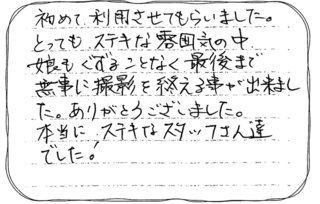 初めて利用させてもらいました。
とっても ステキな雰囲気の中
娘もぐずることなく最後まで
無事に撮影を終える事が出来まし
た。ありがとうございました。
本当に ステキなスタッフさん達
でした!